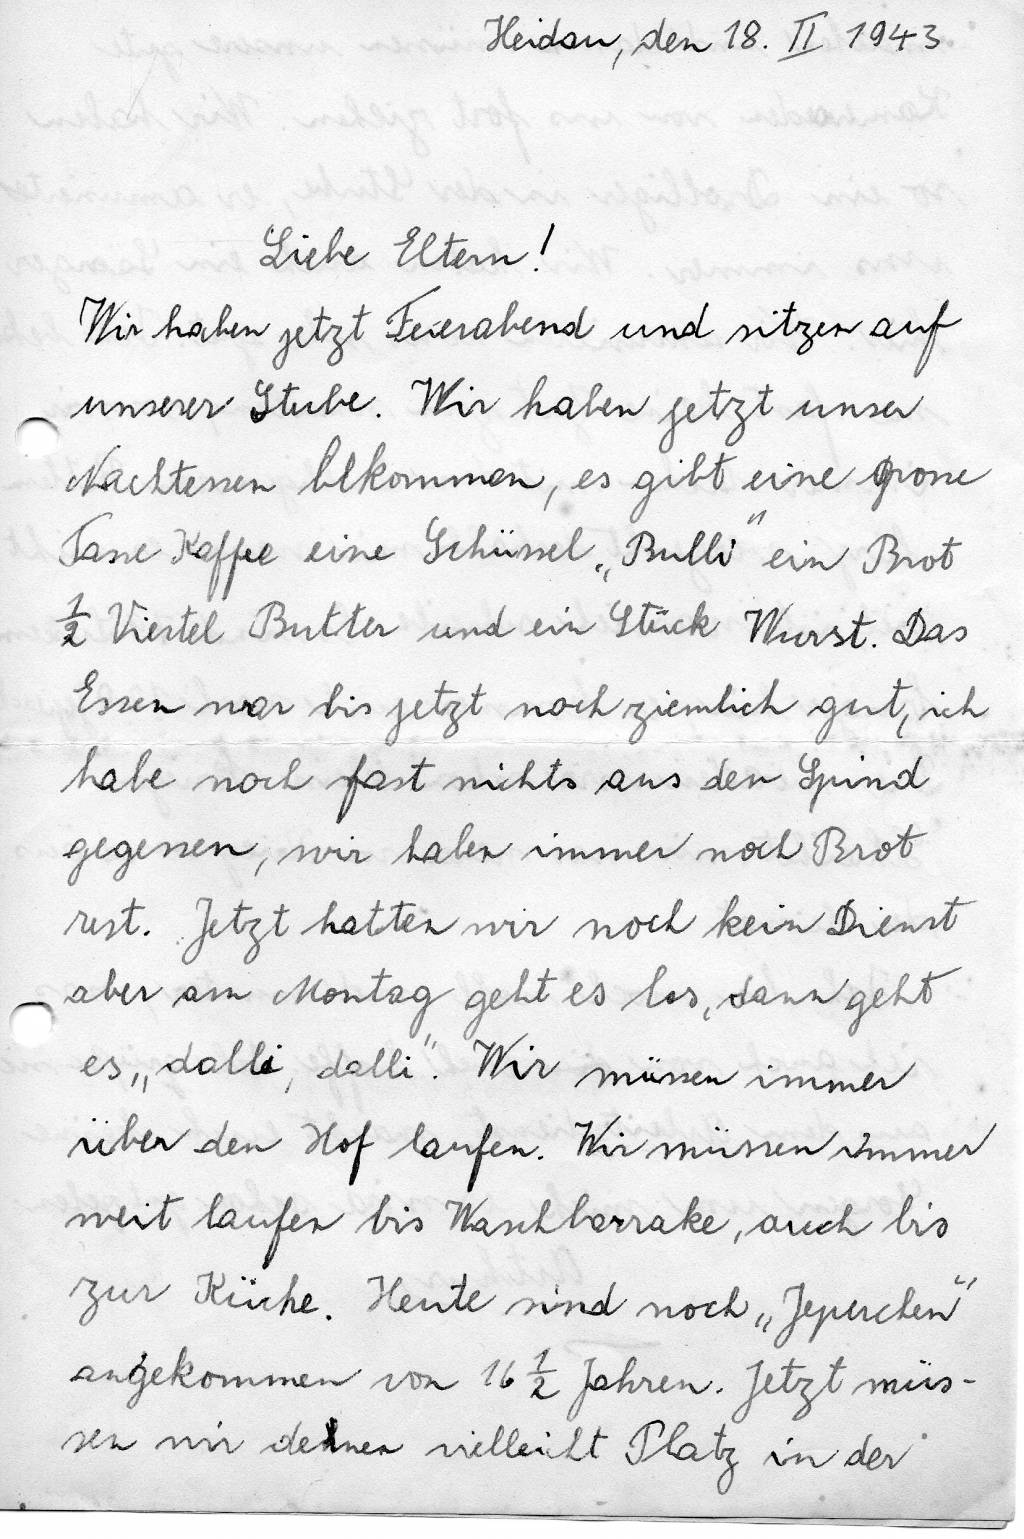 Heidau, den 18. II 1943
Liebe Eltern!
Wir haben jetzt Feierabend und sitzen auf
unserer Stube. Wir haben jetzt unser
Nachtessen bekommen, es gibt eine grosse
Tasse Kaffee eine Schüssel „Bulli" ein Brot
½ Viertel Butter und ein Stück Wurst. Das
Essen war bis jetzt noch ziemlich gut, ich
habe noch fast nichts aus den Spind
gegessen, wir haben immer noch Brot
rest. Jetzt hatten wir noch kein Dienst
aber am Montag geht es los, dann geht
es „dalli, dalli". Wir müssen immer
über den Hof laufen. Wir müssen immer
weit laufen bis Waschbarrake, auch bis
zur Küche. Heute sind noch „Jepuschen"
angekommen von 16 ½ Jahren. Jetzt müs-
sen wir denen vielleicht Platz in der